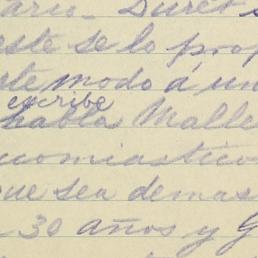 ario - Duret
este se lo prop
rte modo á un
escribe
habla Malle
ncomiastico
que sea demas
30 años y G